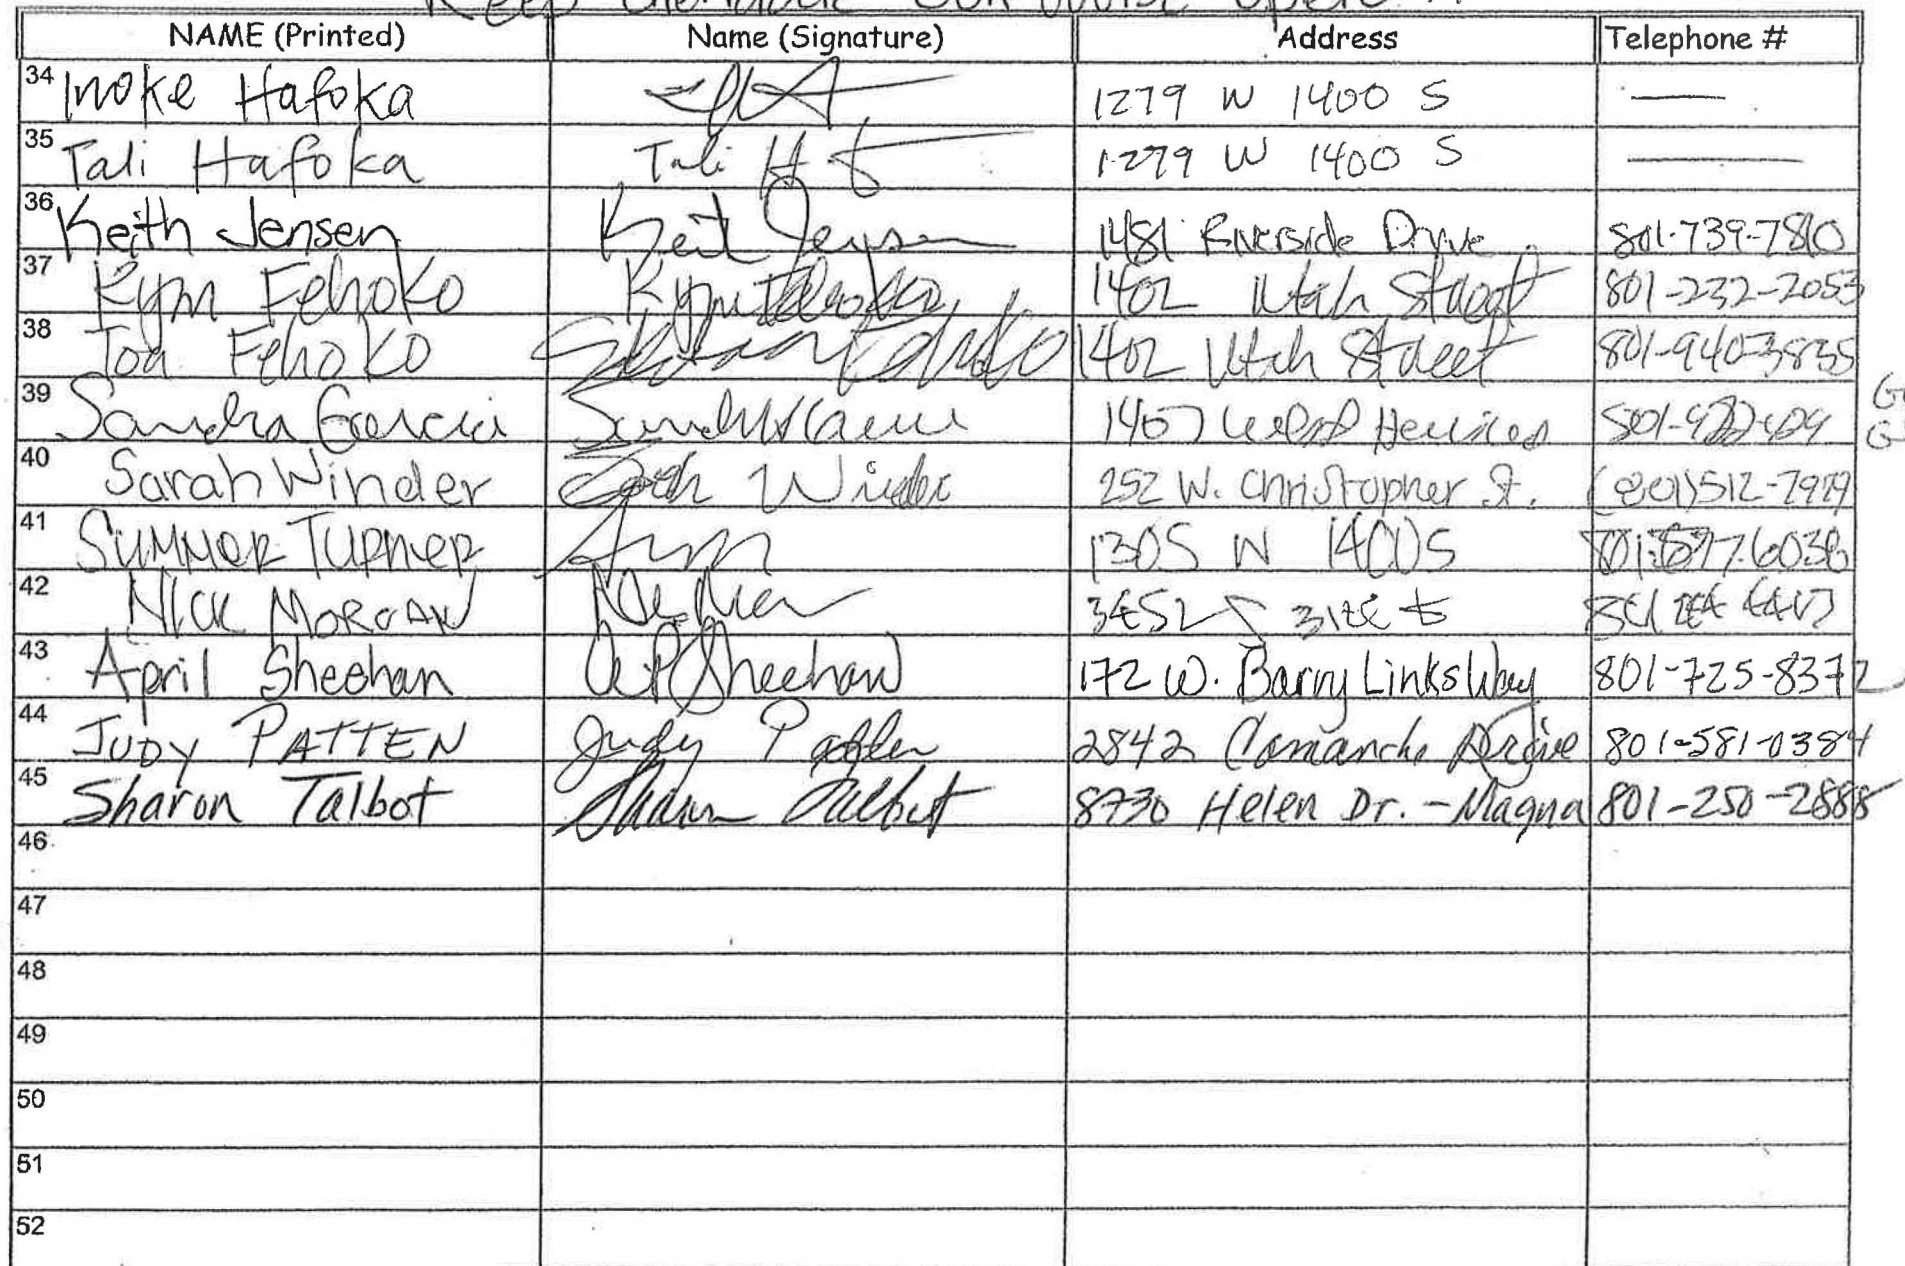 Keep open
NAME (Printed) Name (Signature) Address Telephone #
34 Inoke Hafoka 1279 W 1400 S —
35 Tali Hafoka Tali H 1279 W 1400 S —
36 Keith Jensen Keith Jensen 1481 Riverside Drive 801-739-7810
37 Kym Fehoko Kym Fehoko 1402 Utah Street 801-232-2053
38 Toa Fehoko Fehoko 1402 Utah Street 801-940-3835
39 Sandra Garcia 1407 West
40 Sarah Winder Sarah Winder 252 W. Christopher St. (801) 512-7979
41 SUMMER TURNER 1305 W 1400 S
42 NICK MORGAN
43 April Sheehan A.P. Sheehan 172 W. Barry Links Way 801-725-8372
44 JUDY PATTEN Judy Patten 2842 Comanche Drive 801-581-0384
45 Sharon Talbot Sharon Talbot 8730 Helen Dr. - Magna 801-250-2888
46
47
48
49
50
51
52